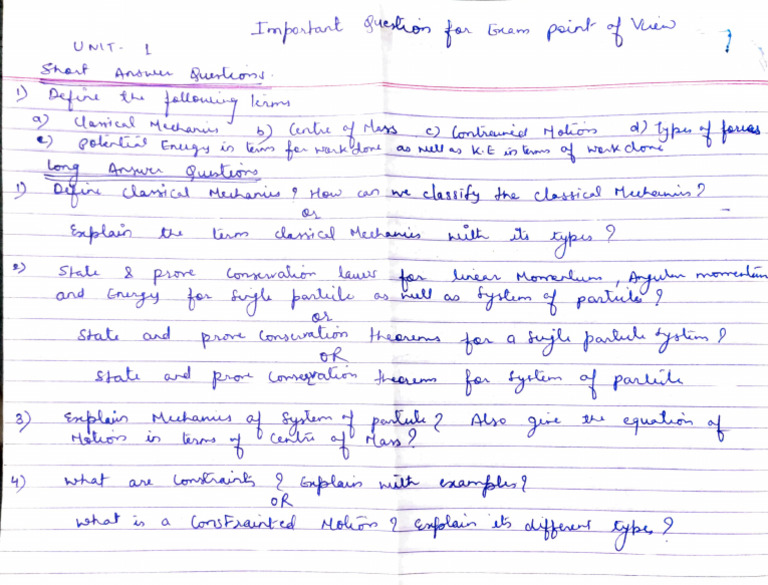 Important Question for Exam point of View
UNIT- 1
Short Answer Questions.
1) Define the following terms
a) Classical Mechanics b) Centre of Mass c) Contrained Motion d) Types of forces
e) Potential Energy in terms for work done as well as K.E in terms of work done.
Long Answer Questions
1) Define Classical Mechanics? How can we classify the Classical Mechanics?
or
Explain the term classical Mechanics with its types?
2) State & prove Conservation laws for linear Momentum, Angular momentum
and Energy for Single particle as well as System of particle?
or
State and prove Conservation theorems for a single particle System?
OR
State and prove Conservation theorems for System of particle
3) Explain Mechanics of System of particle? Also give the equation of
Motion in terms of Centre of Mass?
4) What are Constraints? Explain with examples?
OR
What is a Constrainted Motion? Explain its different types?